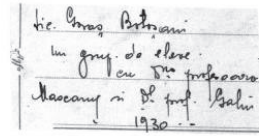 Lic. Botoșani
Un grup de eleve
cu D-na profesoara
și D-l prof. Galin
1930